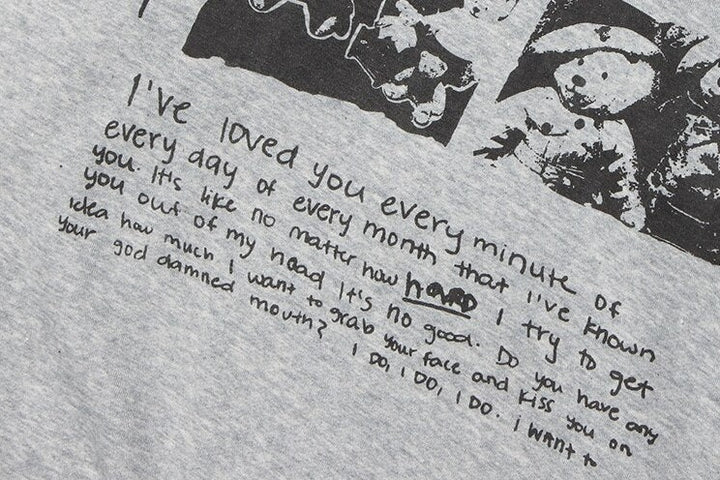 I've loved you every minute of
every day of every month that I've known
you. It's like no matter how HARD I try to get
you out of my head It's no good. Do you have any
idea how much I want to grab your face and kiss you on
your god damned mouth? I DO, I DO, I DO. I WANT to